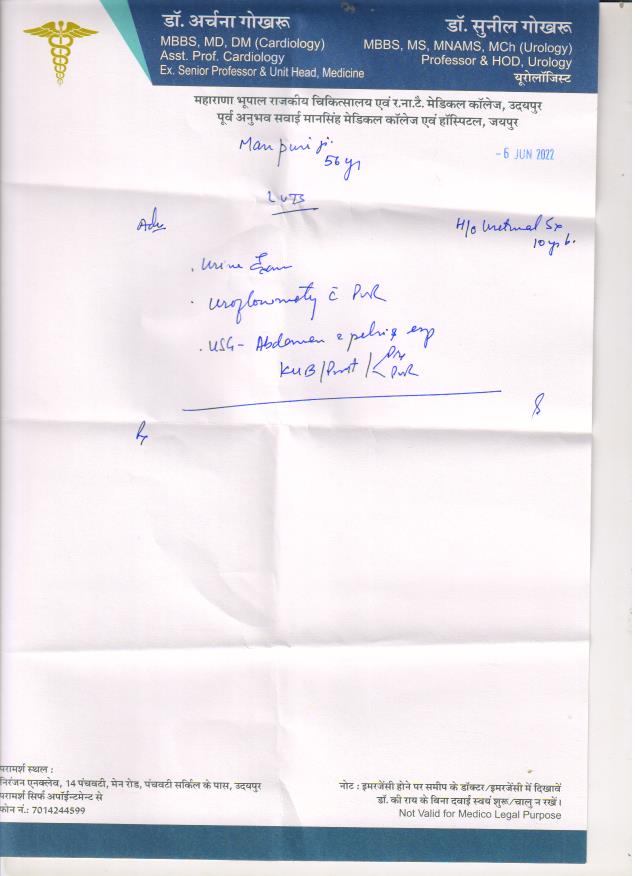 डॉ. अर्चना गोखरू
MBBS, MD, DM (Cardiology)
Asst. Prof. Cardiology
Ex. Senior Professor & Unit Head, Medicine
डॉ. सुनील गोखरू
MBBS, MS, MNAMS, MCh (Urology)
Professor & HOD, Urology
यूरोलॉजिस्ट
महाराणा भूपाल राजकीय चिकित्सालय एवं र.ना.टै. मेडिकल कॉलेज, उदयपुर
पूर्व अनुभव सवाई मानसिंह मेडिकल कॉलेज एवं हॉस्पिटल, जयपुर
Man puri ji
56 yr
- 6 JUN 2022
LUTS
Adv
H/o Urethral Sx
10 yr b.
. Urine Exam
. Uroflowmetry c̄ PVR
. USG - Abdomen & pelvis esp
KUB / Prost / Pre
PVR
Rx
परामर्श स्थल :
निरंजन एनक्लेव, 14 पंचवटी, मेन रोड, पंचवटी सर्किल के पास, उदयपुर
परामर्श सिर्फ अपॉईन्टमेन्ट से
फोन नं.: 7014244599
नोट : इमरजेंसी होने पर समीप के डॉक्टर/इमरजेंसी में दिखावें
डॉ. की राय के बिना दवाई स्वयं शुरू/चालु न रखें।
Not Valid for Medico Legal Purpose